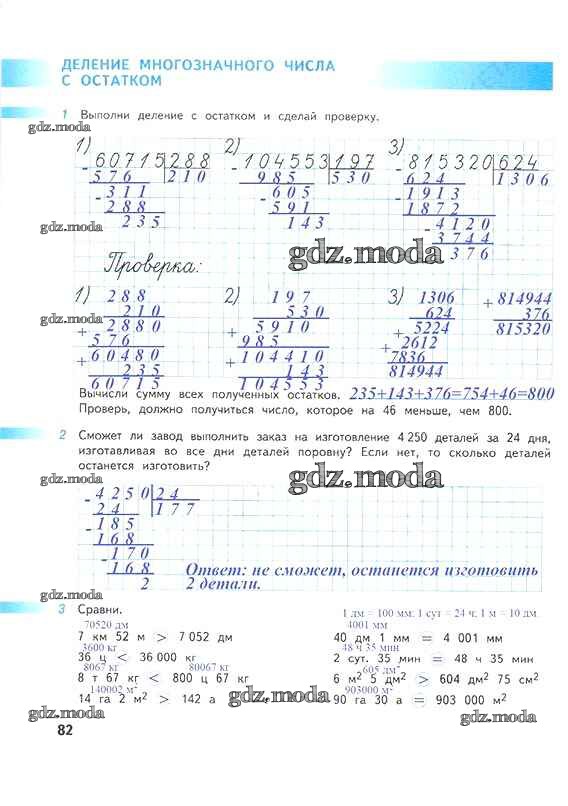 ДЕЛЕНИЕ МНОГОЗНАЧНОГО ЧИСЛА
С ОСТАТКОМ
1 Выполни деление с остатком и сделай проверку.
gdz.moda
1) 2) 3)
- 60715 288 - 104553 197 - 815320 624
576 210 985 530 624 1306
- 311 - 605 - 1913
288 591 1872
235 143 - 4120
gdz.moda 3744
gdz.moda 376
Проверка:
1) 288 2) 197 3) 1306 + 814944
210 530 624 376
gdz.moda
+ 2880 + 5910 + 5224 815320
576 985 2612
+ 60480 + 104410 7836
235 143 814944
60715 104553
Вычисли сумму всех полученных остатков. 235+143+376=754+46=800
Проверь, должно получиться число, которое на 46 меньше, чем 800.
gdz.moda
2 Сможет ли завод выполнить заказ на изготовление 4 250 деталей за 24 дня,
изготавливая во все дни деталей поровну? Если нет, то сколько деталей
останется изготовить?
gdz.moda
gdz.moda
- 4250 24
24 177
- 185
168
- 170
168 Ответ: не сможет, останется изготовить
2 2 детали.
gdz.moda
3 Сравни. 1 дм = 100 мм; 1 сут = 24 ч; 1 м = 10 дм
70520 дм 4001 мм
7 км 52 м > 7 052 дм 40 дм 1 мм = 4 001 мм
3600 кг 48 ч 35 мин
36 ц < 36 000 кг 2 сут. 35 мин = 48 ч 35 мин
8067 кг 80067 кг 605 дм²
8 т 67 кг < 800 ц 67 кг 6 м² 5 дм² > 604 дм² 75 см²
140002 м² 903000 м²
14 га 2 м² > 142 а 90 га 30 а = 903 000 м²
gdz.moda gdz.moda
82